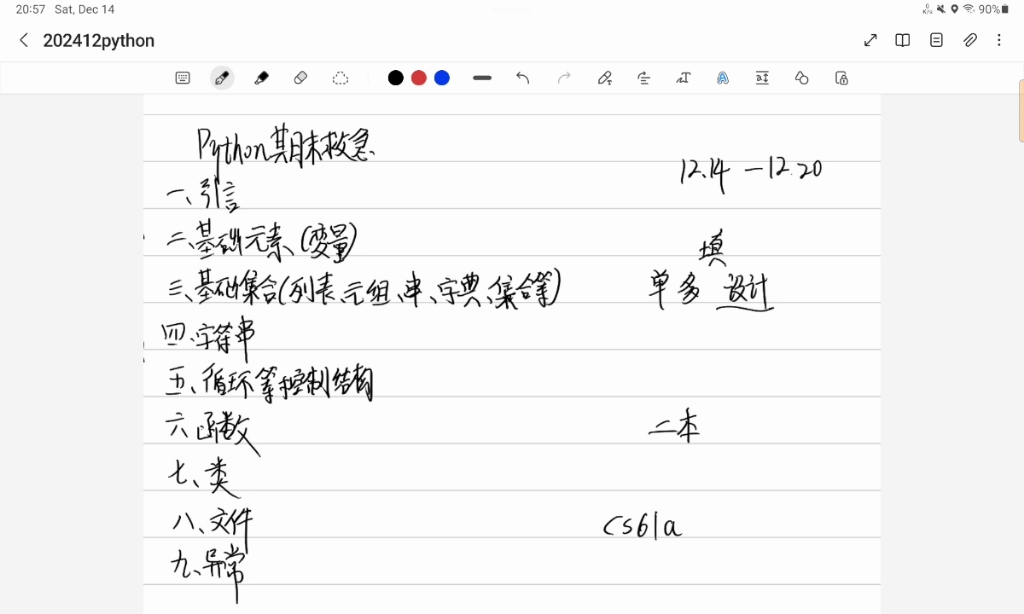 20:57 Sat, Dec 14
90%
202412python
Python期末救急
12.14 — 12.20
一、引言
二、基础元素(变量)
填
三、基础集合(列表、元组、串、字典、集合等)
单 多 设计
四、字符串
五、循环等控制结构
六、函数
二本
七、类
八、文件
cs61a
九、异常